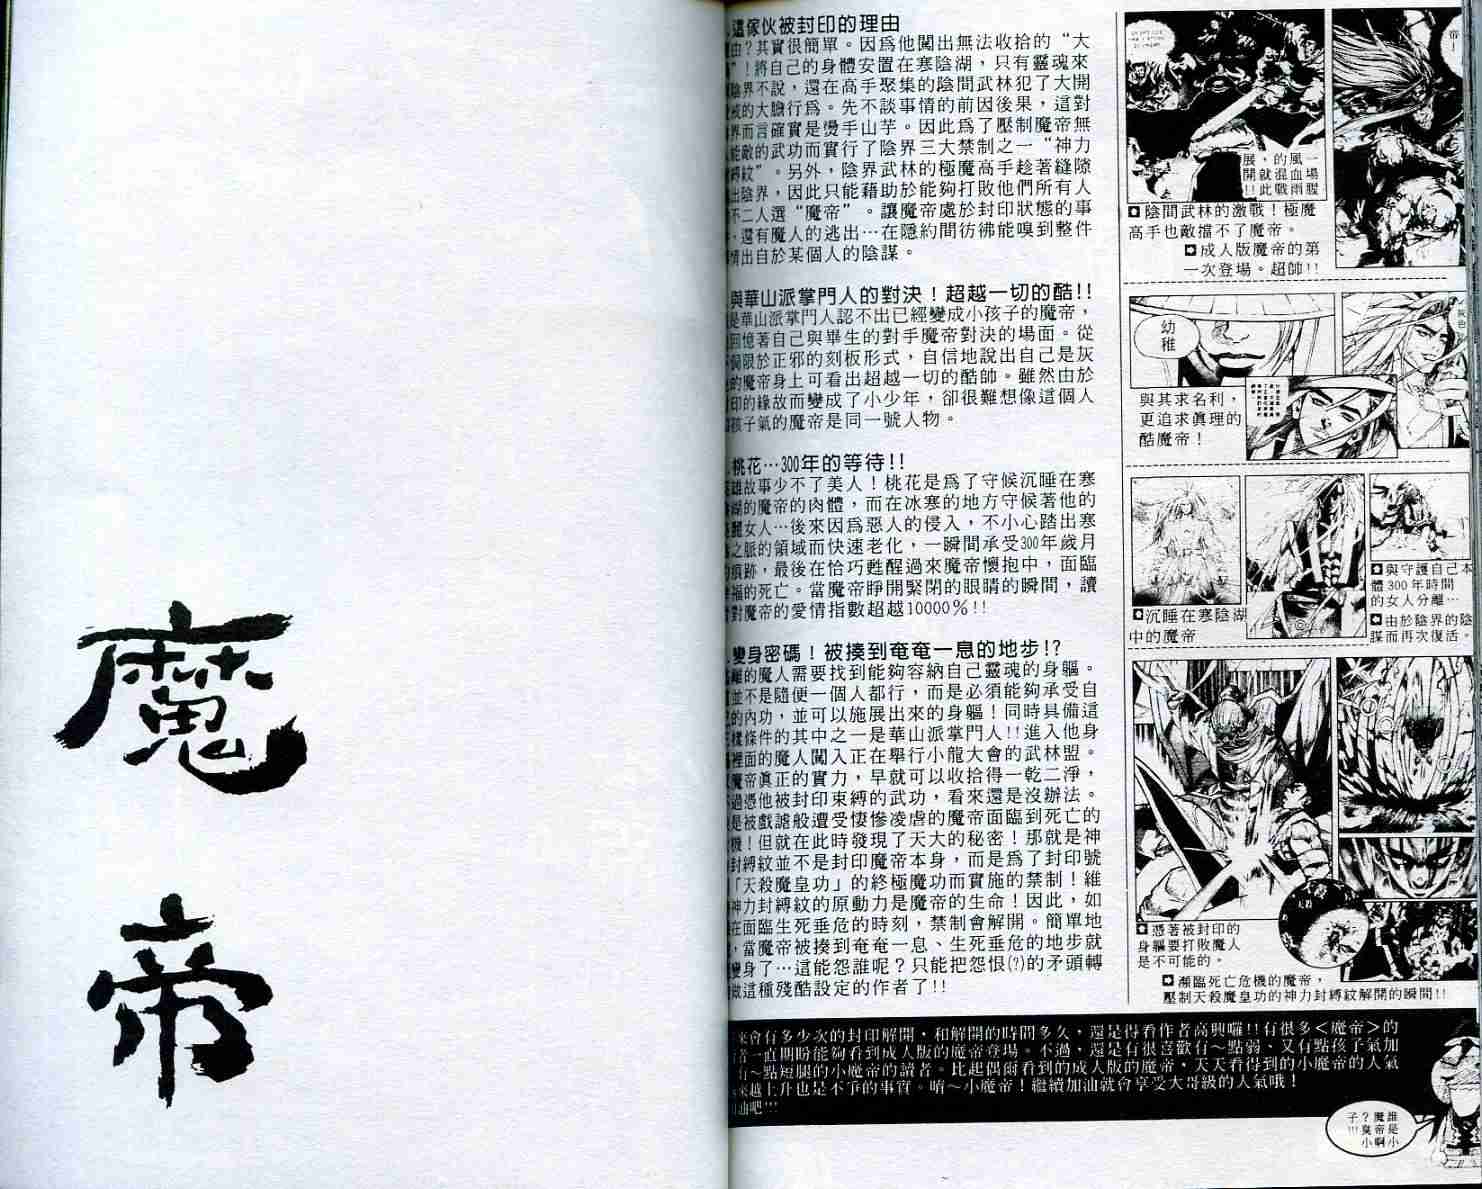 魔
帝
這傢伙被封印的理由
由？其實很簡單。因為他闖出無法收拾的“大
”！將自己的身體安置在寒陰湖，只有靈魂來
陰界不說，還在高手聚集的陰間武林犯了大開
戒的大膽行為。先不談事情的前因後果，這對
界而言確實是燙手山芋。因此為了壓制魔帝無
能敵的武功而實行了陰界三大禁制之一“神力
縛紋”。另外，陰界武林的極魔高手趁著縫隙
出陰界，因此只能藉助於能夠打敗他們所有人
不二人選“魔帝”。讓魔帝處於封印狀態的事
，還有魔人的逃出…在隱約間彷彿能嗅到整件
情出自於某個人的陰謀。
與華山派掌門人的對決！超越一切的酷!!
是華山派掌門人認不出已經變成小孩子的魔帝，
回憶著自己與畢生的對手魔帝對決的場面。從
侷限於正邪的刻板形式，自信地說出自己是灰
的魔帝身上可看出超越一切的酷帥。雖然由於
印的緣故而變成了小少年，卻很難想像這個人
孩子氣的魔帝是同一號人物。
桃花…300年的等待!!
雄故事少不了美人！桃花是為了守候沉睡在寒
湖的魔帝的肉體，而在冰寒的地方守候著他的
麗女人…後來因為惡人的侵入，不小心踏出寒
之脈的領域而快速老化，一瞬間承受300年歲月
痕跡，最後在恰巧甦醒過來魔帝懷抱中，面臨
福的死亡。當魔帝睜開緊閉的眼睛的瞬間，讀
對魔帝的愛情指數超越10000％!!
變身密碼！被揍到奄奄一息的地步!?
離的魔人需要找到能夠容納自己靈魂的身軀。
並不是隨便一個人都行，而是必須能夠承受自
的內功，並可以施展出來的身軀！同時具備這
樣條件的其中之一是華山派掌門人!!進入他身
裡面的魔人闖入正在舉行小龍大會的武林盟。
魔帝真正的實力，早就可以收拾得一乾二淨，
過憑他被封印束縛的武功，看來還是沒辦法。
是被戲謔般遭受悽慘凌虐的魔帝面臨到死亡的
機！但就在此時發現了天大的秘密！那就是神
封縛紋並不是封印魔帝本身，而是為了封印號
「天殺魔皇功」的終極魔功而實施的禁制！維
神力封縛紋的原動力是魔帝的生命！因此，如
在面臨生死垂危的時刻，禁制會解開。簡單地
，當魔帝被揍到奄奄一息、生死垂危的地步就
變身了…這能怨誰呢？只能把怨恨(?)的矛頭轉
做這種殘酷設定的作者了!!
來會有多少次的封印解開，和解開的時間多久，還是得看作者高興囉!!有很多＜魔帝＞的
者一直期盼能夠看到成人版的魔帝登場。不過，還是有很喜歡有～點弱、又有點孩子氣加
有～點短腿的小魔帝的讀者。比起偶爾看到的成人版的魔帝，天天看得到的小魔帝的人氣
來越上升也是不爭的事實。唷～小魔帝！繼續加油就會享受大哥級的人氣哦！
油吧!!!
一場腥風血雨的混戰，就此展開!!
陰間武林的激戰！極魔
高手也敵擋不了魔帝。
成人版魔帝的第
一次登場。超帥!!
幼稚
與其求名利，
更追求真理的
酷魔帝！
沉睡在寒陰湖
中的魔帝
與守護自己本
體300年時間
的女人分離…
由於陰界的陰
謀而再次復活。
憑著被封印的
身軀要打敗魔人
是不可能的。
瀕臨死亡危機的魔帝，
壓制天殺魔皇功的神力封縛紋解開的瞬間!!
誰是小
魔帝啊？
臭小子!!!